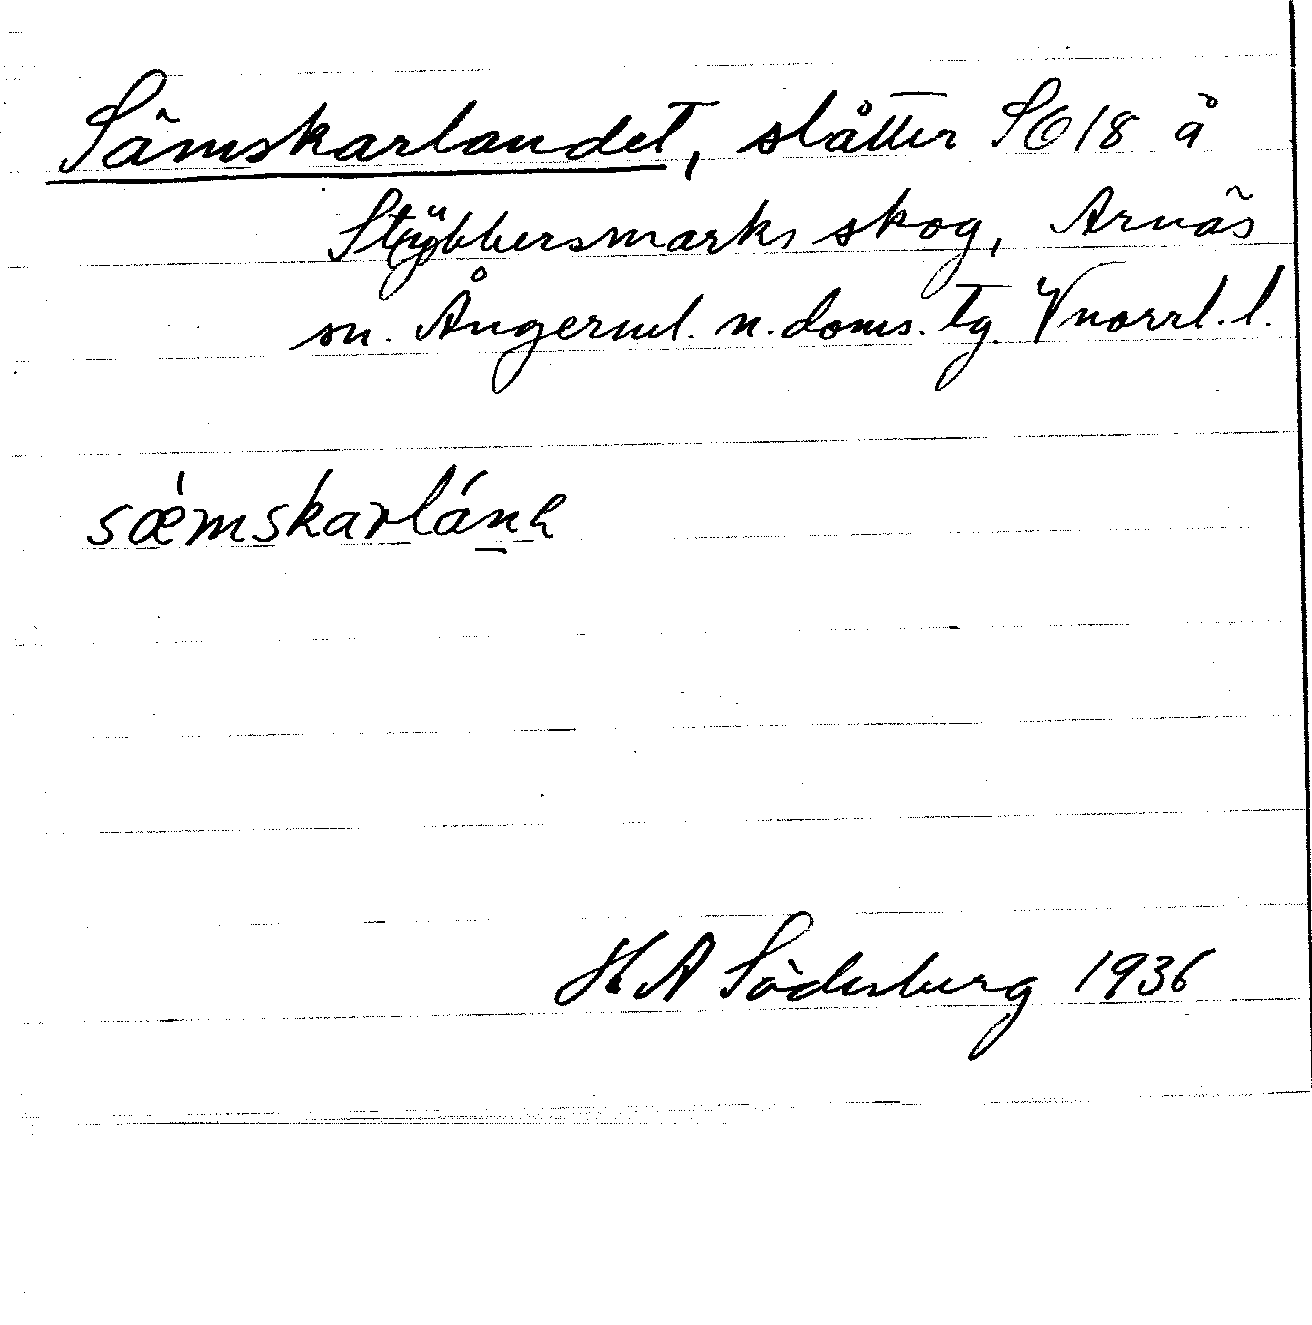 Sämskarlandet, slåtter SO 18 å
Stybbersmarks skog, Arnäs
sn. Ångerml. n. doms. tg. Vnorrl. l.
sœ́mskarlán̠
H A Söderberg 1936